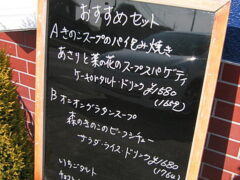 おすすめセット
Aきのこスープのパイ包み焼き
あさりと菜の花のスープスパゲティ
ケーキorタルト・ドリンク ¥1580
Bオニオングラタンスープ
森のきのこのビーフシチュー
サラダ・ライス・ドリンク ¥1680
(1764)
いちごタルト